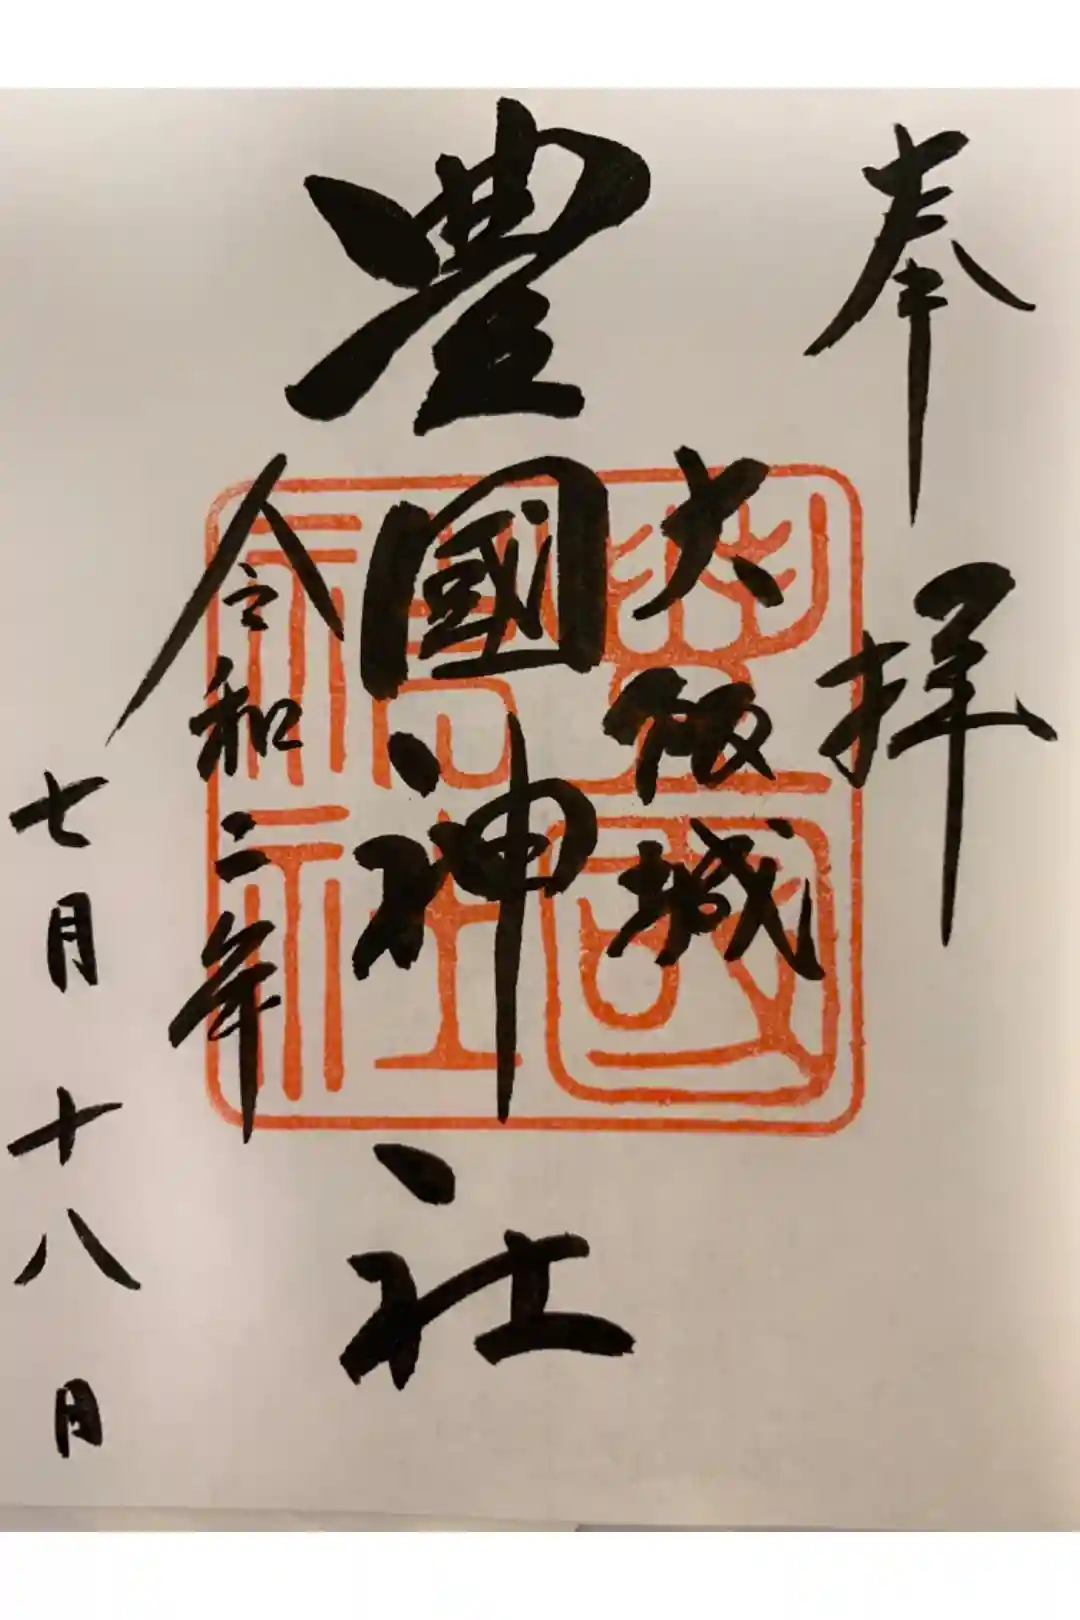 奉拝
大阪城
豊國神社
令和二年
七月十八日
豊國
神社